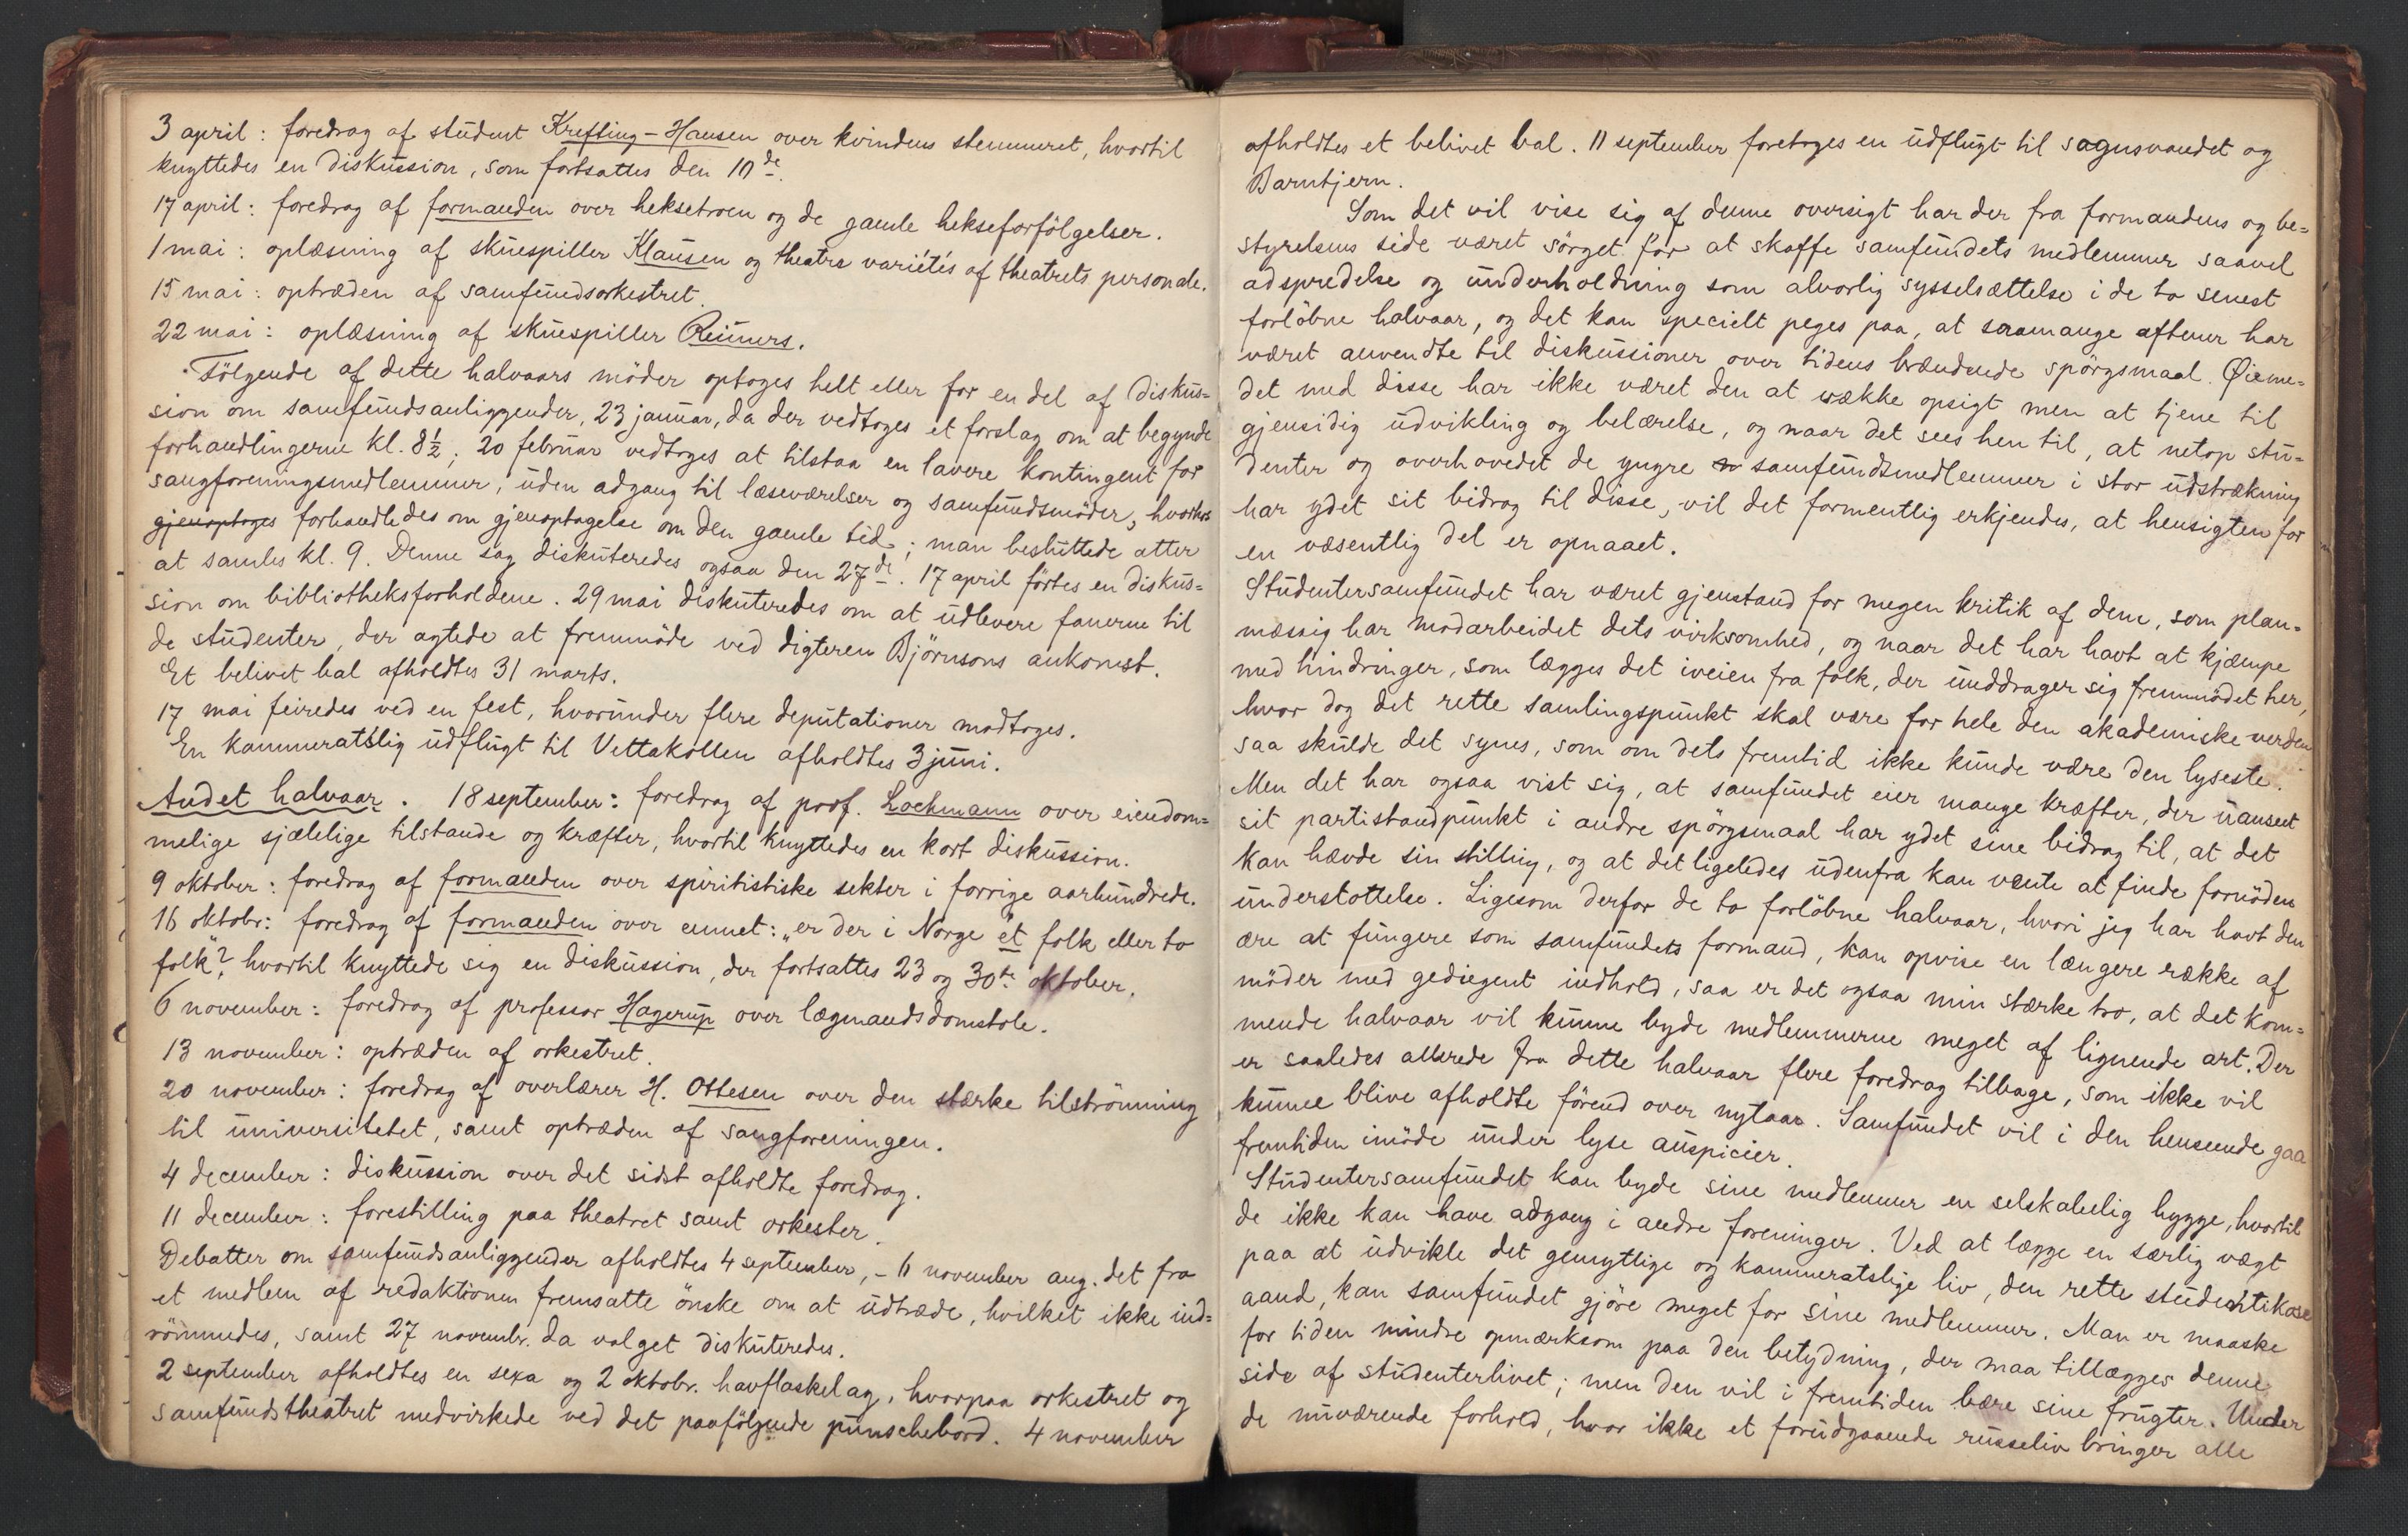 3 april: foredrag af student Krefting-Hansen over kvindens stemmeret, hvortil
knyttedes en diskussion, som fortsattes den 10de.
17 april: foredrag af formanden over heksetroen og de gamle hekseforfölgelser.
1 mai: oplæsning af skuespiller Klausen og theatre variétés af theatrets personale.
15 mai: optræden af samfundsorkestret.
22 mai: oplæsning af skuespiller Reimers.
Fölgende af dette halvaars möder optoges helt eller for en del af diskus=
sion om samfundsanliggender, 23 januar, da der vedtoges et forslag om at begynde
forhandlingerne kl. 8½; 20 februar vedtoges at tilstaa en lavere kontingent for
sangforeningsmedlemmer, uden adgang til læseværelser og samfundsmöder, hvorhos
gjenoptoges forhandledes om gjenoptagelse om den gamle tid; man besluttede atter
at samles kl. 9. Denne sag diskuteredes ogsaa den 27de. 17 april förtes en diskus=
sion om bibliotheksforholdene. 29 mai diskuteredes om at udlevere fanerne til
de studenter, der agtede at fremmöde ved digteren Björnsons ankomst.
Et belivet bal afholdtes 31 marts.
17 mai feiredes ved en fest, hvorunder flere deputationer modtoges.
En kammeratslig udflugt til Vettakollen afholdtes 3 juni.
Andet halvaar. 18 september: foredrag af prof. Lochmann over eiendom=
melige sjælelige tilstande og kræfter, hvortil knyttedes en kort diskussion.
9 oktober: foredrag af formanden over spiritistiske sekter i forrige aarhundrede.
16 oktobr: foredrag af formanden over emnet: „er der i Norge ét folk eller to
folk"? hvortil knyttede sig en diskussion, der fortsattes 23 og 30te oktober.
6 november: foredrag af professor Hagerup over lægmandsdomstole.
13 november: optræden af orkestret.
20 november: foredrag af overlærer H. Ottesen over den stærke tilströmning
til universitetet, samt optræden af sangforeningen.
4 december: diskussion over det sidst afholdte foredrag.
11 december: forestilling paa theatret samt orkester.
Debatter om samfundsanliggender afholdtes 4 september, - 11 november ang. det fra
et medlem af redaktionen fremsatte önske om at udtræde, hvilket ikke ind=
römmedes, samt 27 novembr. da valget diskuteredes.
2 september afholdtes en sexa og 2 oktobr. havflaskelag, hvorpaa orkestret og
samfundstheatret medvirkede ved det paafölgende punschebord. 4 november
afholdtes et belivet bal. 11 september foretoges en udflugt til sognsvandet og
Barntjern.
Som det vil vise sig af denne oversigt har der fra formandens og be=
styrelsens side været sörget for at skaffe samfundets medlemmer saavel
adspredelse og underholdning som alvorlig sysselsættelse i de to senest
forlöbne halvaar, og det kan specielt peges paa, at saamange aftener har
været anvendte til diskussioner over tidens brændende spörgsmaal. Øieme=
det med disse har ikke været den at vække opsigt men at tjene til
gjensidig udvikling og belærelse, og naar det sees hen til, at netop stu=
denter og overhovedet de yngre samfundsmedlemmer i stor udstrækning
har ydet sit bidrag til disse, vil det formentlig erkjendes, at hensigten for
en væsentlig del er opnaaet.
Studentersamfundet har været gjenstand for megen kritik af dem, som plan=
mæssig har modarbeidet dets virksomhed, og naar det har havt at kjæmpe
med hindringer, som lægges det iveien fra folk, der unddrager sig fremmödet her,
hvor dog det rette samlingspunkt skal være for hele den akademiske verden
saa skulde det synes, som om dets fremtid ikke kunde være den lyseste.
Men det har ogsaa vist sig, at samfundet eier mange kræfter, der uanseet
sit partistandpunkt i andre spörgsmaal har ydet sine bidrag til, at det
kan hævde sin stilling, og at det ligeledes udenfra kan vente at finde fornöden
understøttelse. Ligesom derfor de to forlöbne halvaar, hvori jeg har havt den
ære at fungere som samfundets formand, kan opvise en længere række af
möder med gediegent indhold, saa er det ogsaa min stærke tro, at det kom=
mende halvaar vil kunne byde medlemmerne meget af lignende art. Der
er saaledes allerede fra dette halvaar flere foredrag tilbage, som ikke vil
kunne blive afholdte förend over nytaar. Samfundet vil i den henseende gaa
fremtiden imöde under lyse auspicier.
Studentersamfundet kan byde sine medlemmer en selskabelig hygge, hvortil
de ikke kan have adgang i andre foreninger. Ved at lægge en særlig vægt
paa at udvikle det gemyttlige og kammeratslige liv, den rette studentikose
aand, kan samfundet gjöre meget for sine medlemmer. Man er maaske
for tiden mindre opmærksom paa den betydning, der maa tillægges denne
side af studenterlivet; men den vil i fremtiden bære sine frugter. Under
de nuværende forhold, hvor ikke et forudgaaende russeliv bringer alle